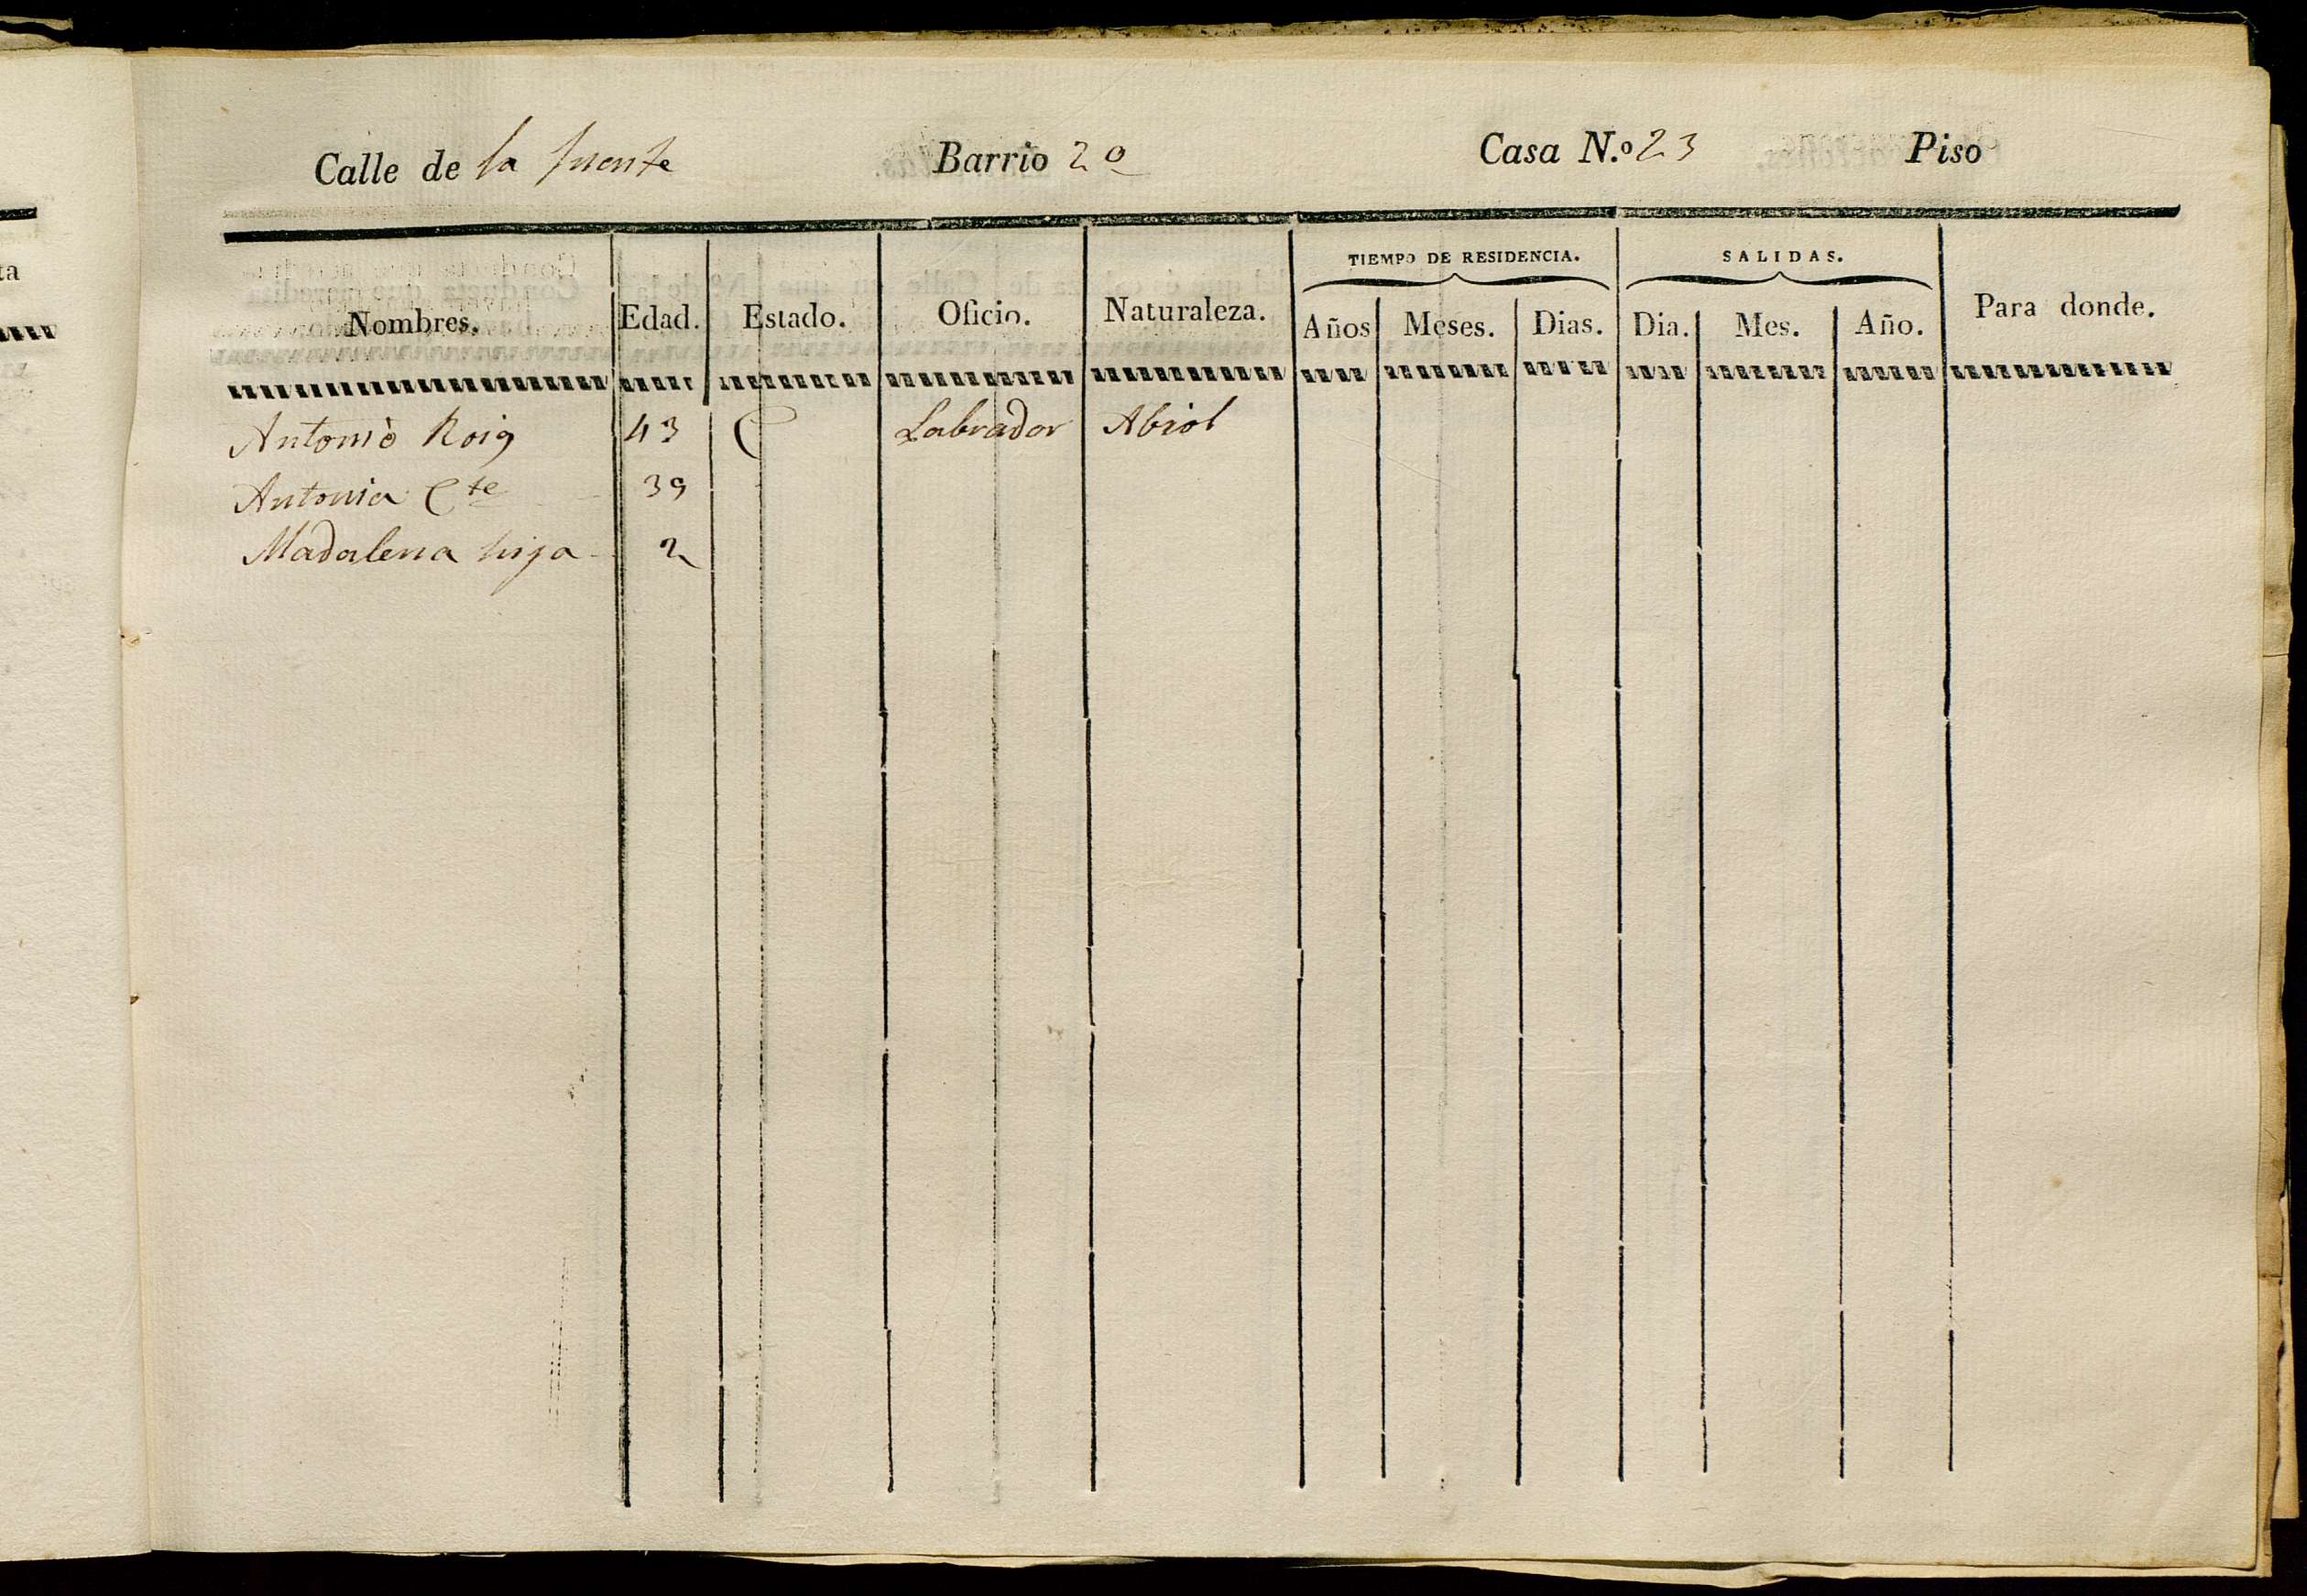 Calle de la fuente Barrio 2o Casa N.o 23 Piso
TIEMPO DE RESIDENCIA. SALIDAS.
Nombres. Edad. Estado. Oficio. Naturaleza. Años Meses. Dias. Dia. Mes. Año. Para donde.
Antonio Roig 43 C Labrador
Antonia Cte 39
Madalena hija 2
ta